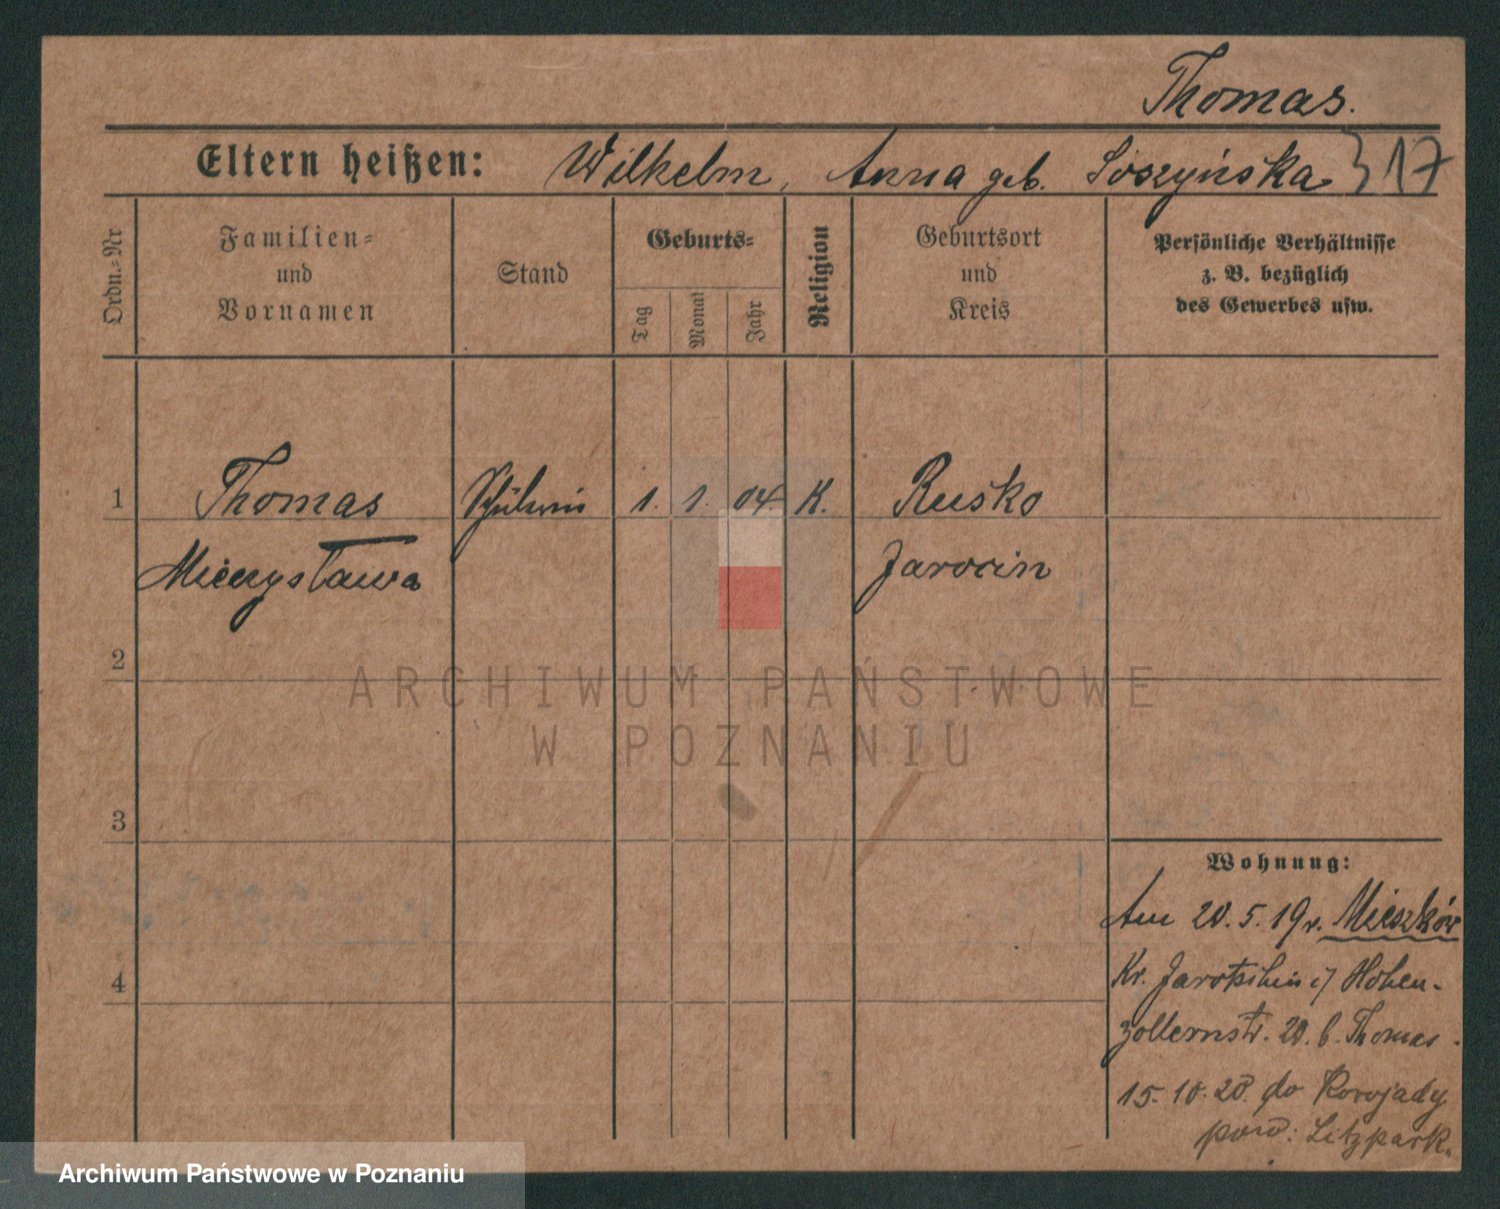 Thomas.
Eltern heißen: Wilhelm, Anna geb. Soszyńska 317
Ordn.=Nr
Familien=
und
Vornamen
Stand
Geburts=
Tag
Monat
Jahr
Religion
Geburtsort
und
Kreis
Persönliche Verhältnisse
z. B. bezüglich
des Gewerbes usw.
1 Thomas Schülerin 1. 1. 04. K. Rusko
Mieczysława Jarocin
2
ARCHIWUM PAŃSTWOWE
W POZNANIU
3
Wohnung:
Am 20.5.19 v. Mieszków
4
Kr. Jarotschin i/ Hohen-
zollernstr. 20. b. Thomas.
15.10.20. do
pow:
Archiwum Państwowe w Poznaniu